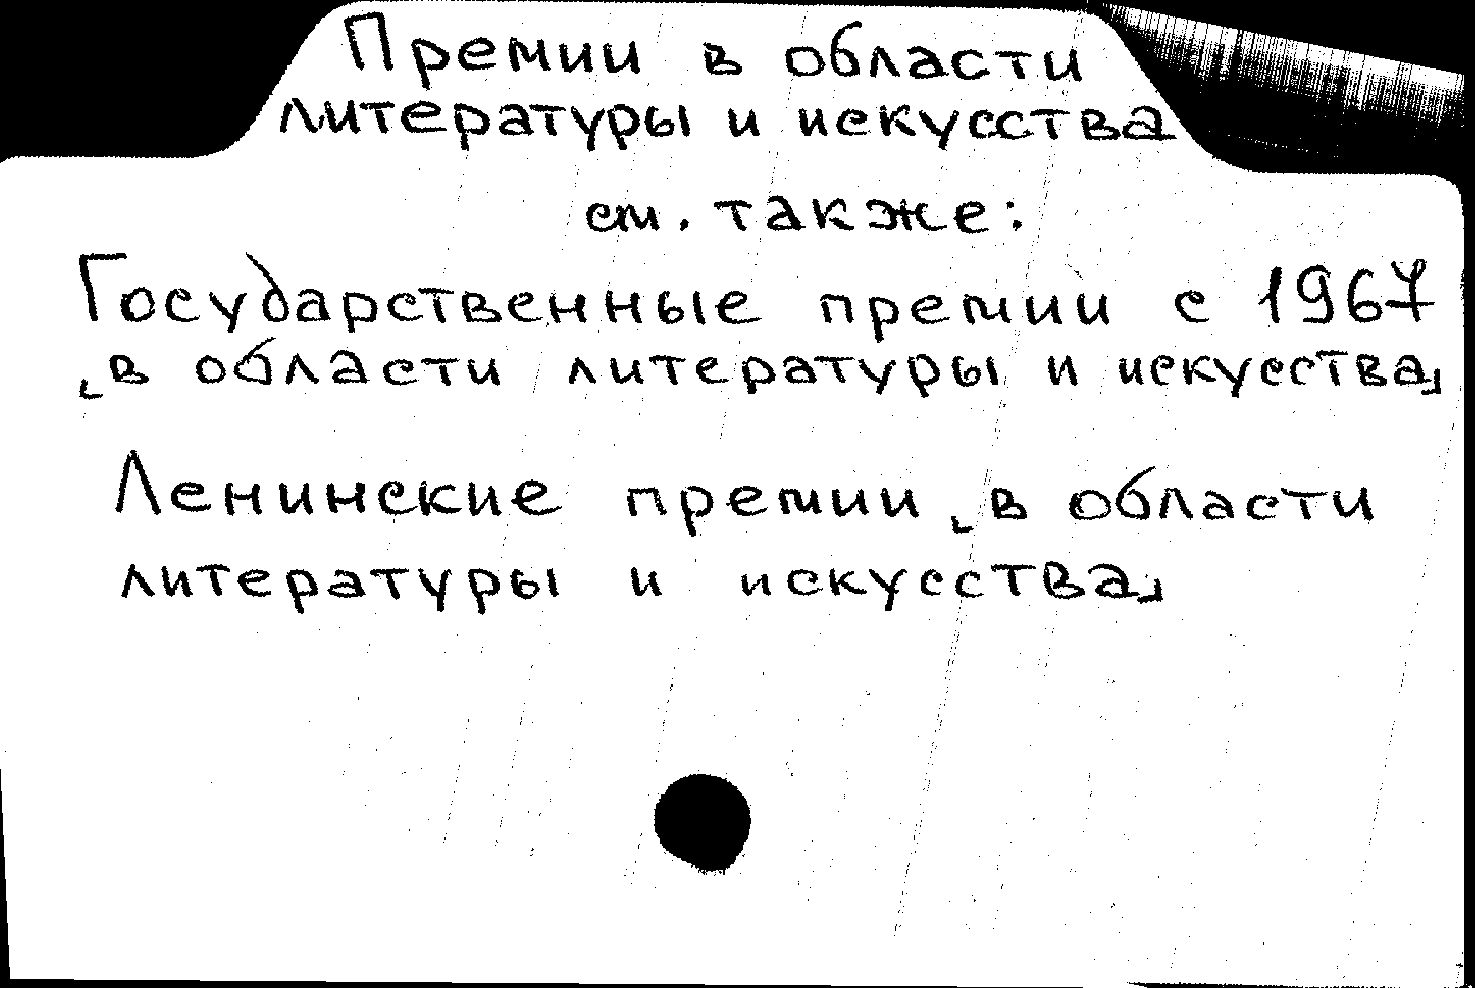 Премии в области
литературы и искусства
см. также:
Государственные премии с 1967
⌞в области литературы и искусства⌟
Ленинские премии ⌞в области
литературы и искусства⌟